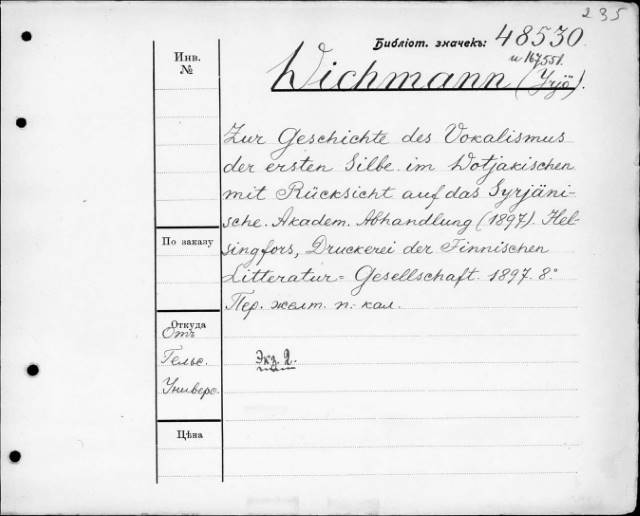 235
Библіот. значекъ: 48530
и 167,551.
Инв. №
Wichmann (Yrjö).
Zur Geschichte des Vokalismus
der ersten Silbe im Wotjakischen
mit Rücksicht auf das Syrjäni-
sche. Akadem. Abhandlung (1897). Hel-
singfors, Druckerei der Finnischen
Litteratur-Gesellschaft. 1897. 8.°
Пер. желт. п.-кал.
По заказу
Откуда
Отъ
Гельс.
Универс.
Экз. 2.
Цѣна